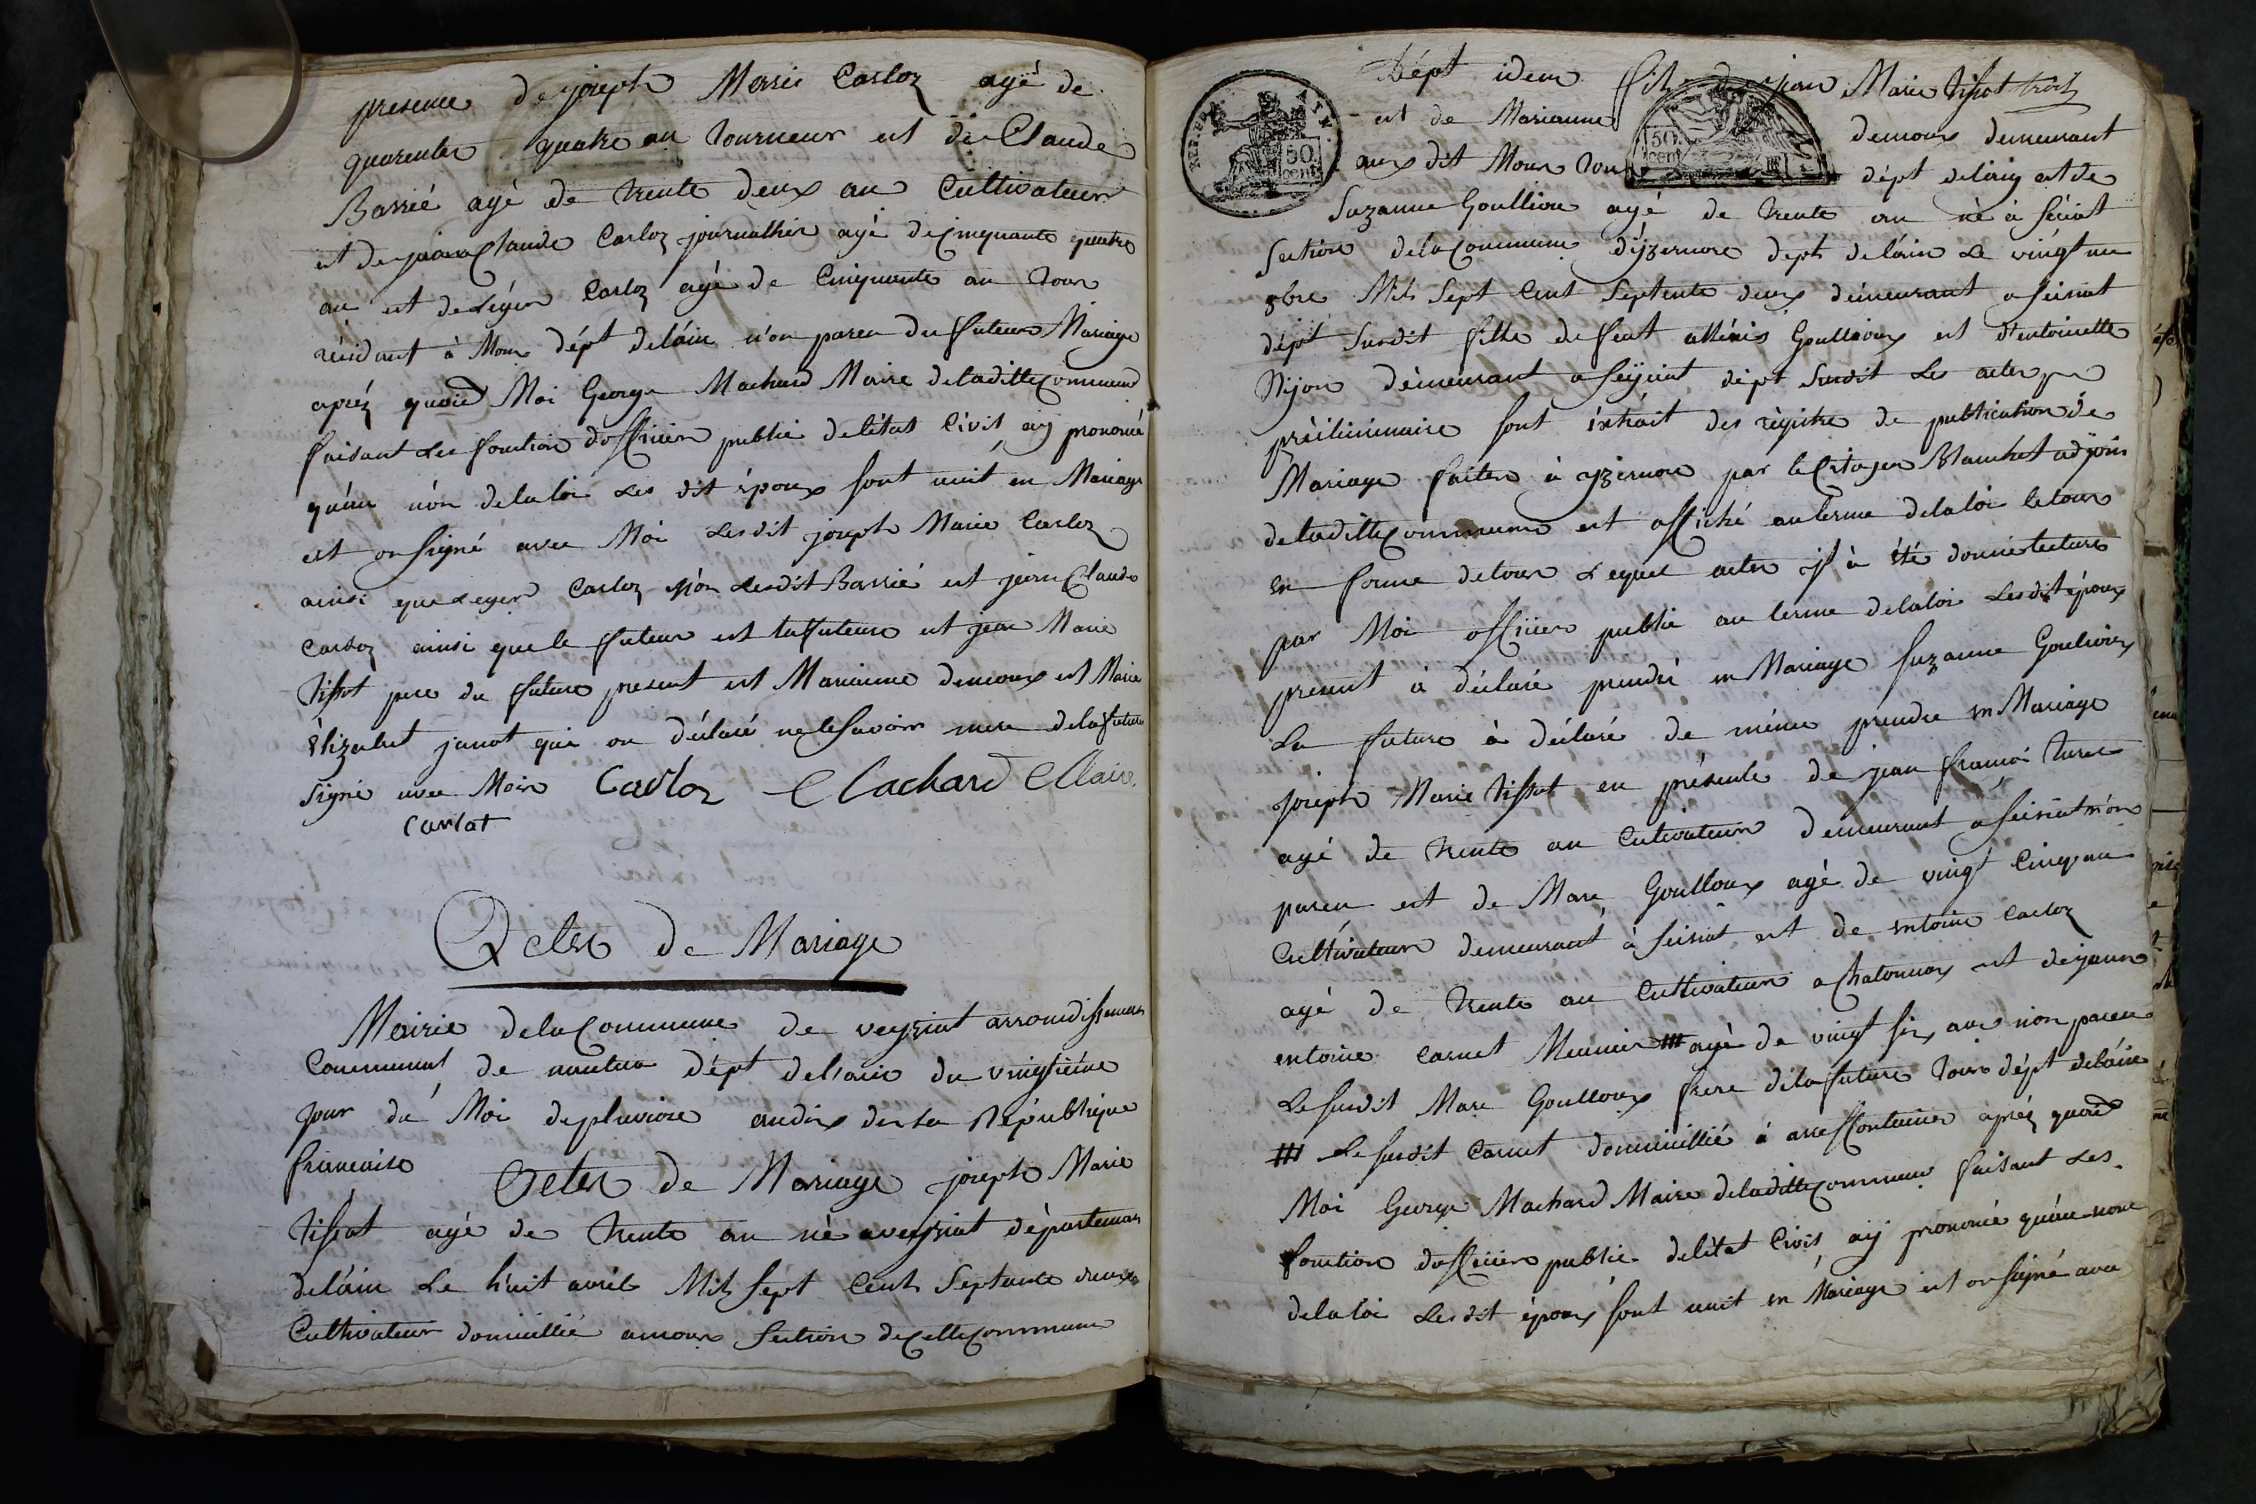 presence de joseph Marie Carloz agé de
quarenter quatre an tourneur est de Claude
Barrié agé de trente deux an Cultivateur
et de jean Claude Carloz journallier agé de Cinquante quatre
an est de Léger Carloz agé de Cinquente an tour
résidant à Mons dépt deláin n'on paren du futeur Mariage
apréz quoid Moi George Machard Maire deladitte Commune
faisant Les fonction dofficier public delétat Civil aij prononcé
quéau nón delaloi Les dit époux sont unit en Mariage
est on signé avec Moi Lesdit joseph Marie Carloz
ainsi que Leger Carloz n'on Lesdit Barrié est jean Claude
Carloz ainsi que le futeur est la futeure et jean Marie
tissot pere du future present est Marianne demoux est Marie
élizabet janot qui on déclaré ne le savoir mere de la future
signé avec Moi Carloz Machard Maire
Carlat
Acter de Mariage
Mairie dela Commune de veyziat arrondissemens
Communal de nantua dépt delain du vingtiéme
Jour du Moi depluviose andix der la République
francaise Acter de Mariage joseph Marie
tissot agé de trente an né aveyziat départemens
deláin Le huit avril Mil sept Cent Septante deux
Cultivateur domicillié amons section de Cette Commune
Dépt idem fils de jean Marie tissot
REP. FRA.
50. cent
50. cent
est de Marianne demoux demeurant
aux dit Mons tous dépt delain est de
Suzanne Goullion agé de trente an né à séciat
section delaCommune d'yzernore dept deláin Le vingt un
9bre Mil Sept Cent Septente deux démeurant a seisiat
dépt Susdit fille de feut Goulloux est d'entoinette
Nijon démeurant a seijciat dépt Susdit Les acter
préliminaire sont éxtrait des régistre de publication de
Mariage faiter à yzernore par le Citoyen Blanchet adjoin
deladitte Commune est affiché auterme delaloi letour
en forme detour Lequel acter il à été donné lecture
par Moi officier public au terme delaloi Lesdit époux
present à déclaré prendre en Mariage Suzanne Goulioux
La future à déclaré de même prendre en Mariage
joseph Marie tissot en présence de jean francoi
agé de trente an Cultivateur demeurant à seisiat n'on
paren est de Marc Goulloux agé de vingt Cinq an
Cultivateur demeurant à seisiat est de entoine Carloz
agé de trente an Cultivateur a Chatonnax est de jean
entoine Carnet Meunier ### agé de vingt six an non paren
Le susdit Marc Goulloux frere déla future tour dépt deláin
### Le susdit Carnet domicillié à arfontaine aprèz quoid
Moi George Machard Maire deladitte Commune faisant Les
fonction dofficier public delétat Civil aij prononcé quéau nom
delaloi Les dit époux sont unit en Mariage est on signé avec